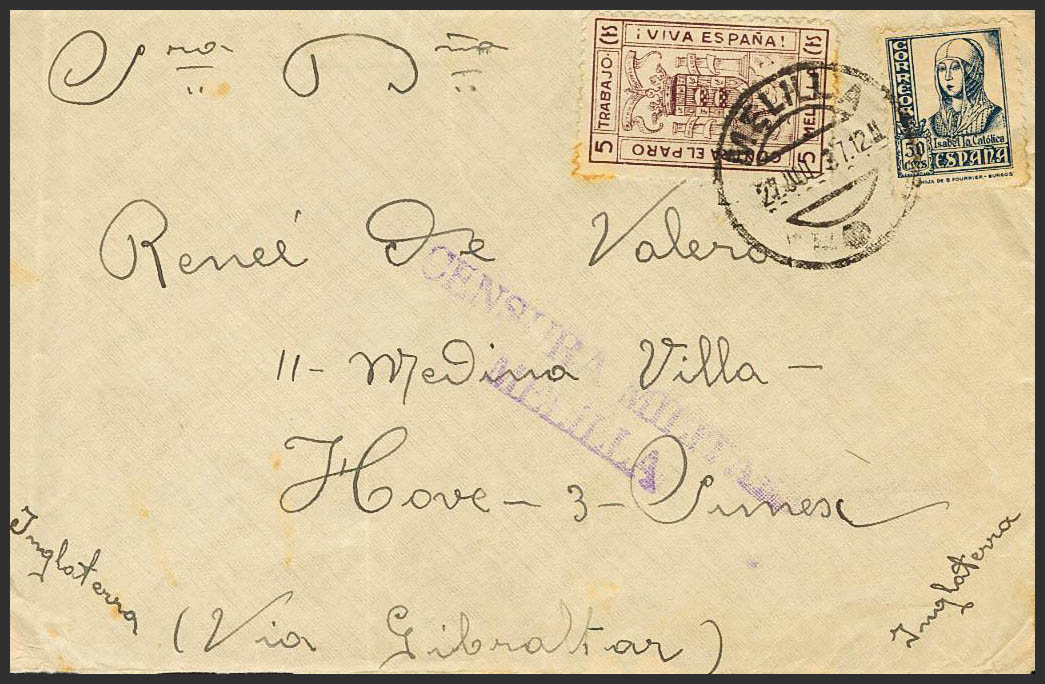 Sra Dña
¡VIVA ESPAÑA!
TRABAJO
5 CTS
MELILLA
5 CTS
CONTRA EL PARO
CORREOS
Isabel la Católica
50 CTS ESPAÑA
HIJA DE B. FOURNIER - BURGOS
MELILLA
37.12
Reneé de Valero
CENSURA MILITAR
MELILLA
11 - Medina Villa -
Hove - 3 - Sussex
Inglaterra
Inglaterra
(Via Gibraltar)